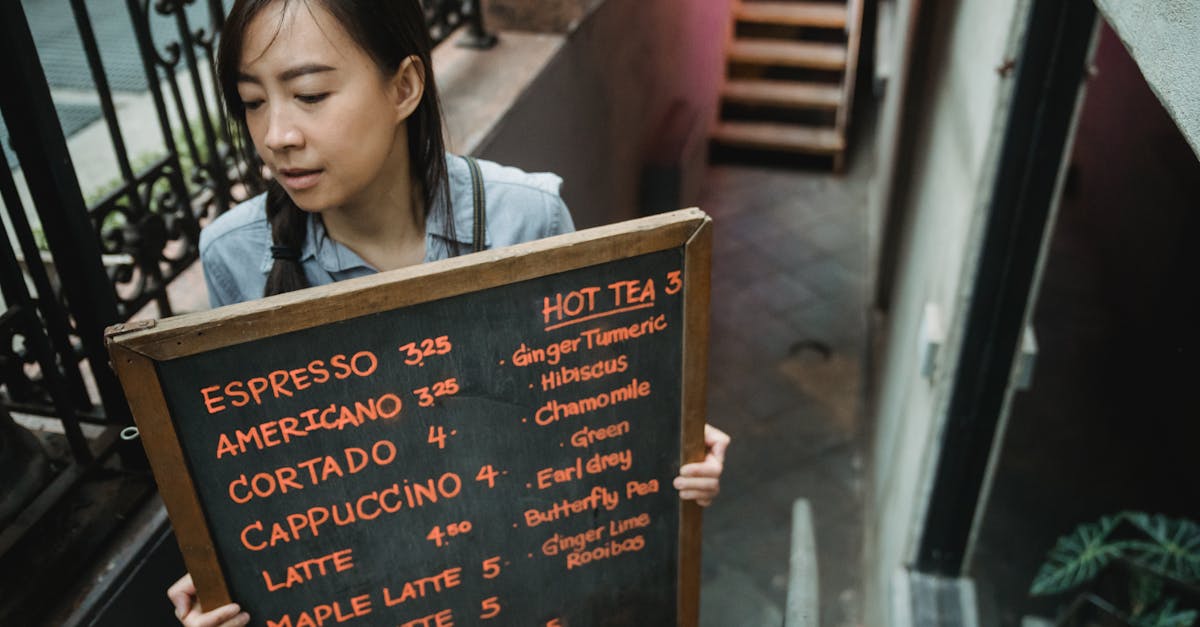 ESPRESSO 3.25
AMERICANO 3.25
CORTADO 4-
CAPPUCCINO 4-
LATTE 4.50
MAPLE LATTE 5-
TTE 5
5
HOT TEA 3
· Ginger Turmeric
· Hibiscus
· Chamomile
· Green
· Earl Grey
· Butterfly Pea
· Ginger Lime
Rooibos